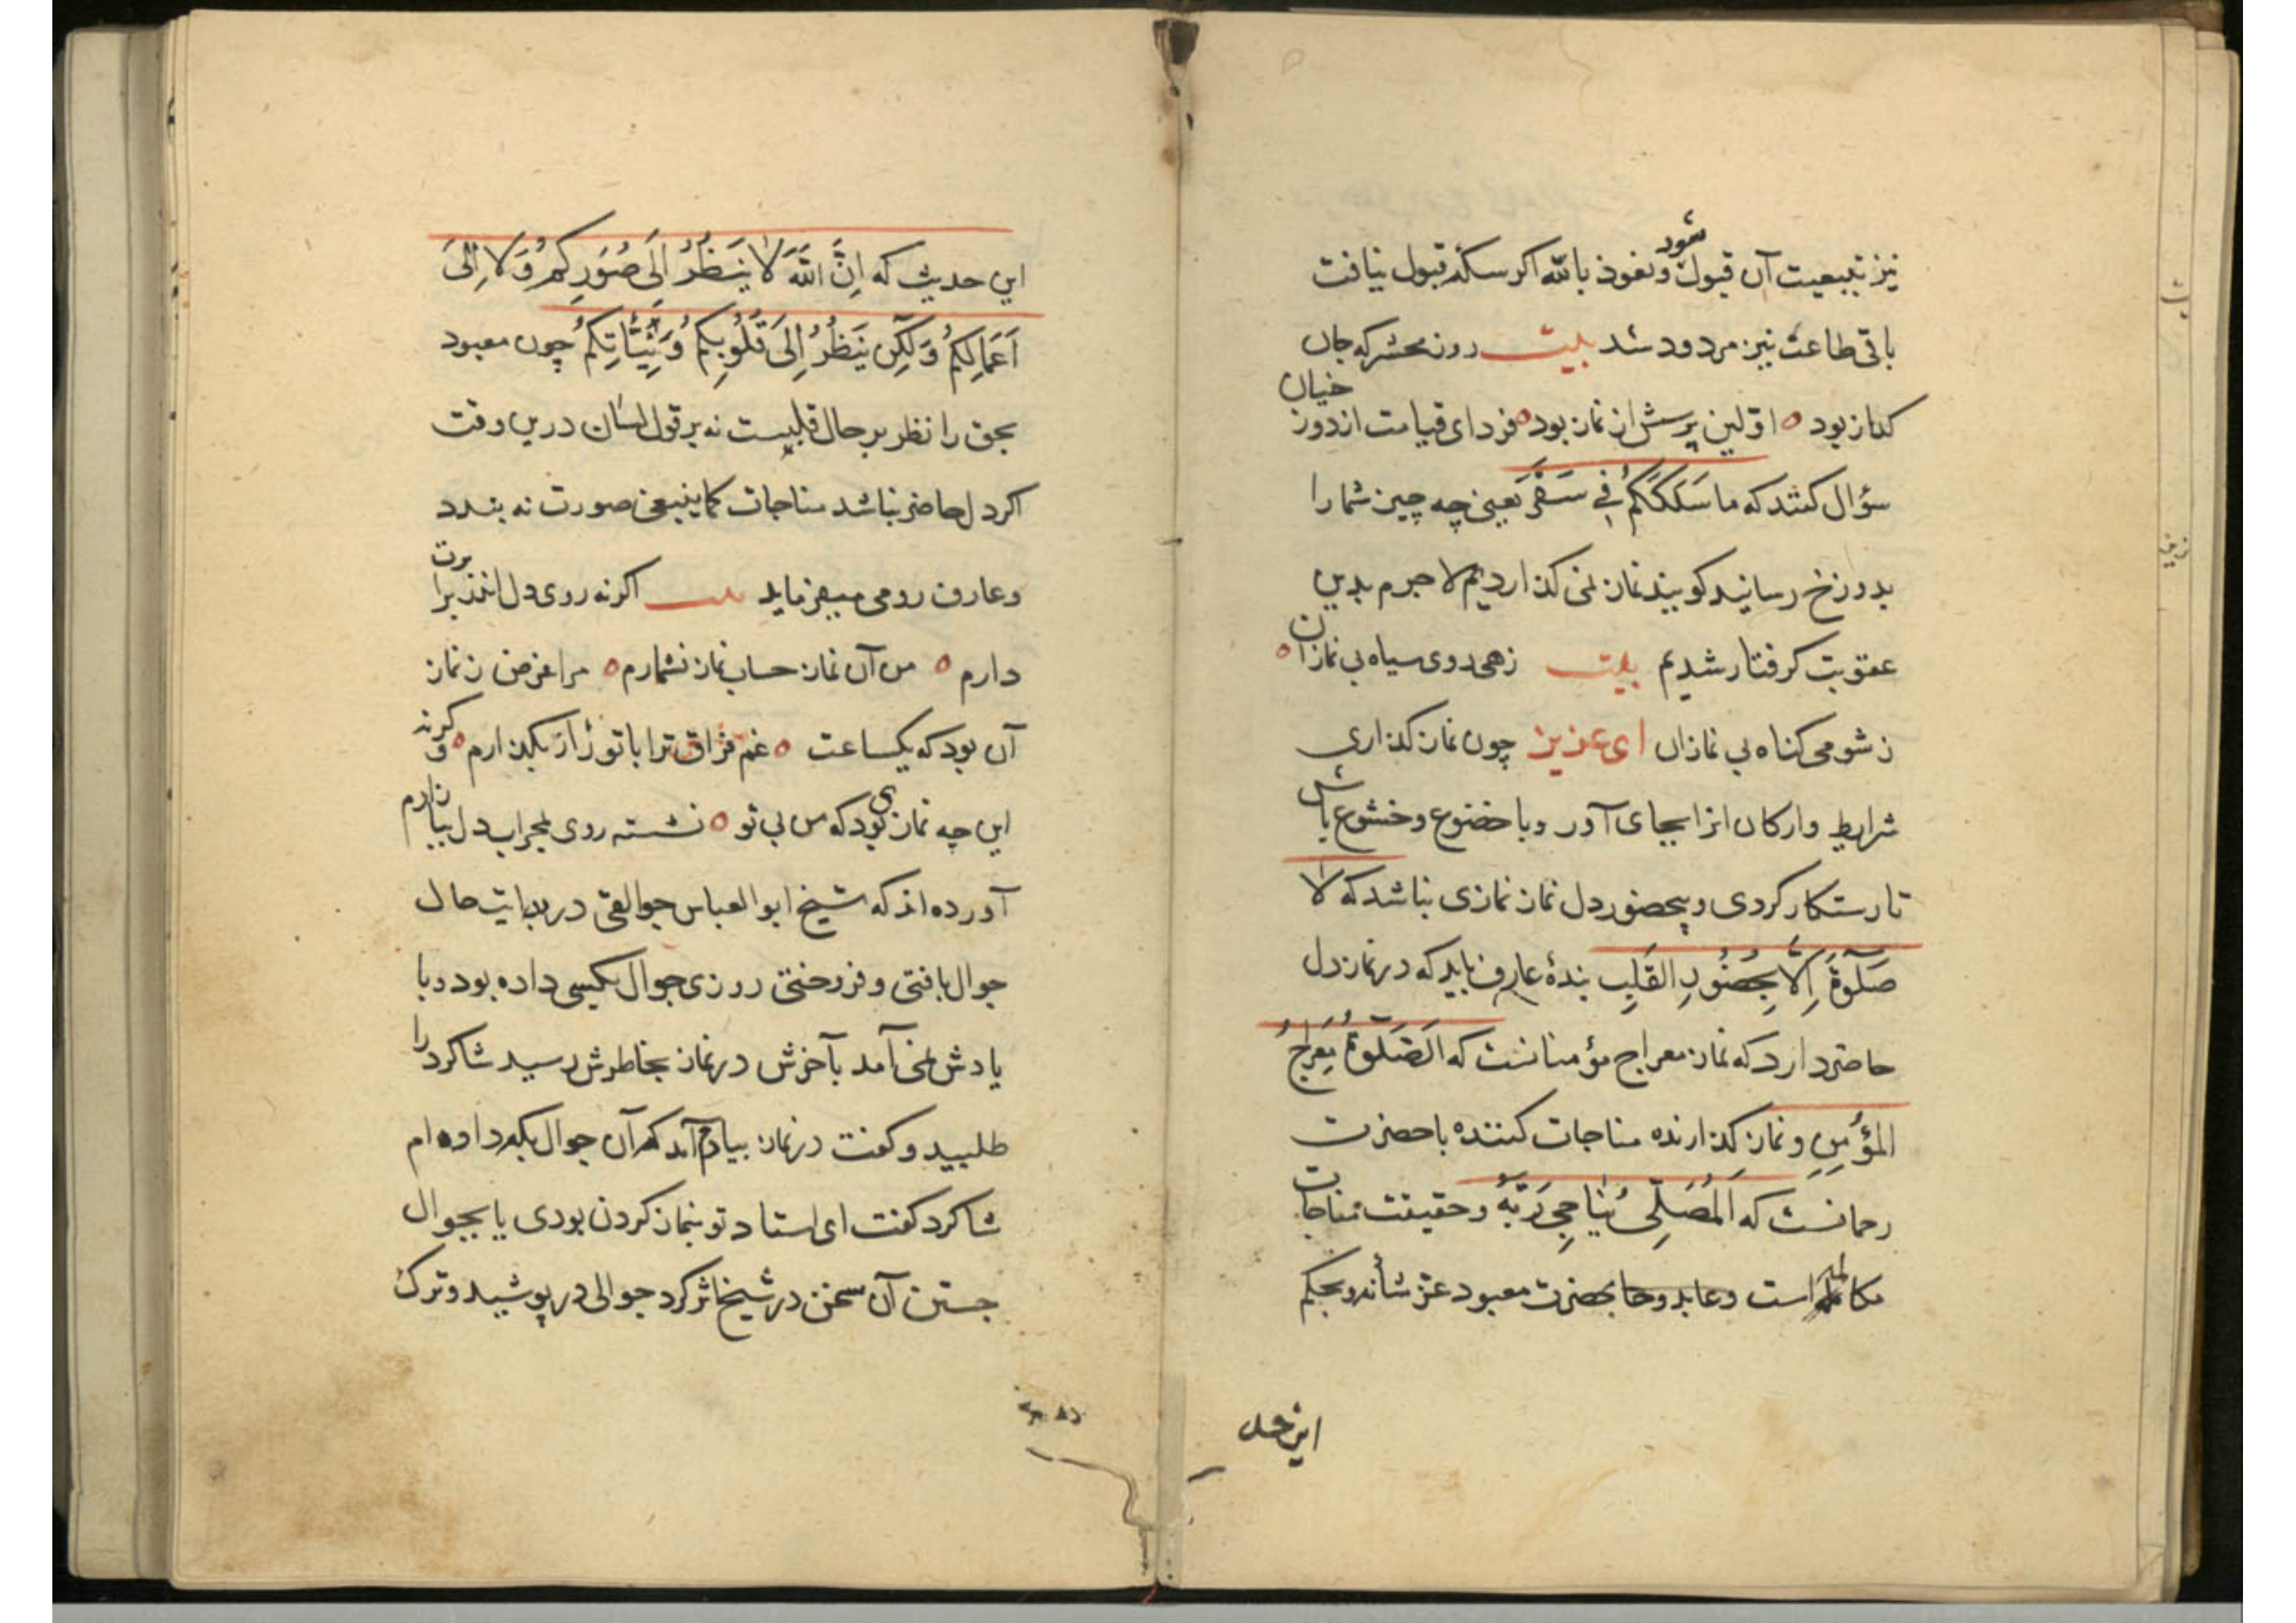 نیز بتبعیت آن قبول شود ونعوذ بالله اکر سکهٔ قبول نیافت
باقی طاعت نیز مردود شد بیت روز محشر که جان
کداز بود ० اوّلین پرسش از نماز بود ० فردای قیامت از دوزخیان
سؤال کنند که ما سَلَکَکُمْ فِی سَقَرَ یعنی چه چیز شما را
بدوزخ رسانید کویند نماز نمی کذاردیم لاجرم بدین
عقوبت کرفتار شدیم بیت زهی روی سیاه بی نمازان ०
ز شومی کناه بی نمازان ای عزیز چون نماز کذاری
شرایط وارکان انرا بجای آور وبا خضوع وخشوع باش
تا رستکار کردی وبیحضور دل نماز نمازی نباشد که لا
صَلٰوةَ اِلّا بِحُضُورِ القَلبِ بندهٔ عارف باید که در نماز دل
حاضر دارد که نماز معراج مؤمنانست که اَلصَّلٰوةُ مِعرَاجُ
المؤمِنِ ونماز کذارنده مناجات کننده باحضرت
رحمانست که اَلمُصَلِّی یُنَاجِی رَبَّهُ وحقیقت مناجات
مکالمه است وعابد وحا بحضرت معبود عزّ شأنه وبحکم
این حد
این حدیث که اِنَّ اللّٰهَ لَا یَنظُرُ اِلَی صُوَرِکُم وَلَا اِلَی
اَعمَالِکُم وَلٰکِن یَنظُرُ اِلَی قُلُوبِکُم وَنِیَّاتِکُم چون معبود
بحق را نظر بر حال قلبیست نه بر قول لسان درین وقت
اکر دل حاضر نباشد مناجات کما ینبغی صورت نه بندد
وعارف رومی میفرماید بیت اکر نه روی دل اندر برابرت
دارم ० من آن نماز حساب نماز نشمارم ० مرا غرض ز نماز
آن بود که یکساعت ० غم فراق ترا با تو زار بکذارم ० وکرنه
این چه نمازی بود که من بی تو ० نشسته روی بمحراب دل ببازارم
آورده اند که شیخ ابو العباس جوالقی در بدایت حال
جوال بافتی وفروختی روزی جوال بکسی داده بود وبا
یادش نمی آمد بآخرش در نماز بخاطرش رسید شاکرد را
طلبید وکفت در نماز بیادم آمد که آن جوال بکه داده ام
شاکرد کفت ای استاد تو بنماز کردن بودی یا بجوال
جستن آن سخن در شیخ اثر کرد جوالی در پوشید وترک